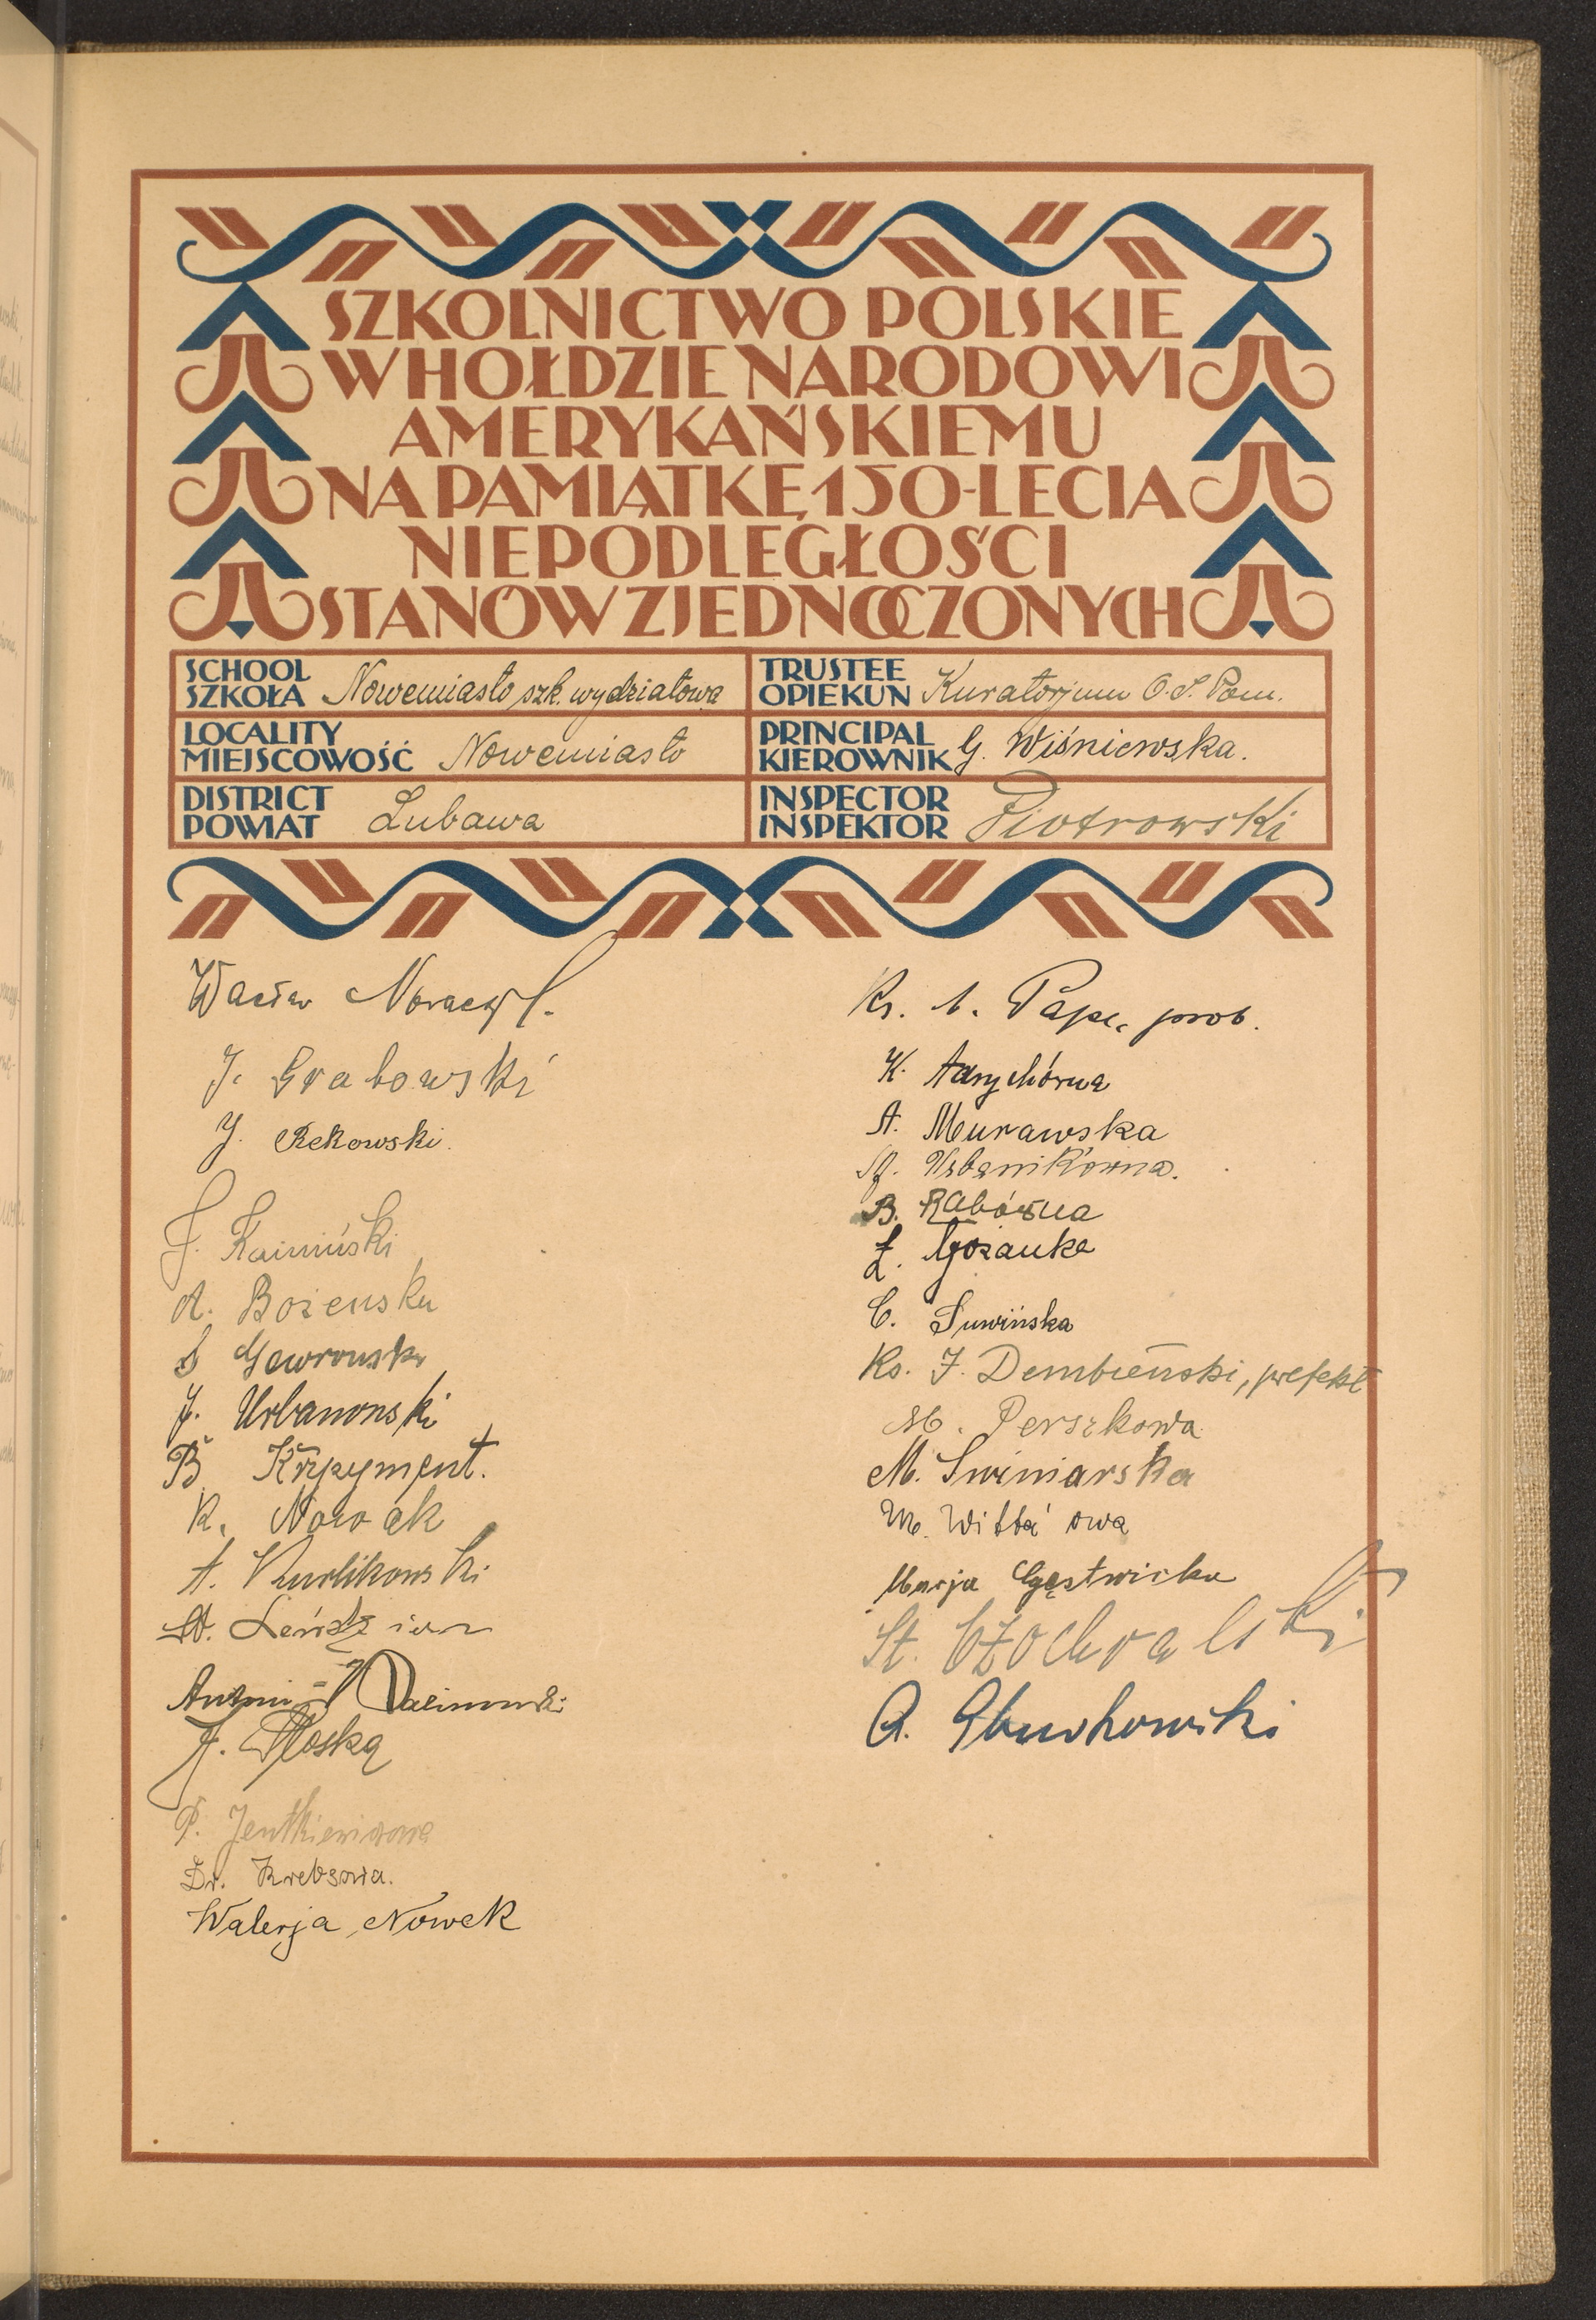 SZKOLNICTWO POLSKIE
W HOŁDZIE NARODOWI
AMERYKAŃSKIEMU
NA PAMIĄTKĘ 150-LECIA
NIEPODLEGŁOŚCI
STANÓW ZJEDNOCZONYCH
SCHOOL
SZKOŁA Nowemiasto szk. wydziałowa
TRUSTEE
OPIEKUN Kuratorjum O.S. Pom.
LOCALITY
MIEJSCOWOŚĆ Nowemiasto
PRINCIPAL
KIEROWNIK G. Wiśniewska.
DISTRICT
POWIAT Lubawa
INSPECTOR
INSPEKTOR Piotrowski
Wacław
J. Grabowski
J. Rekowski.
J. Kaimiński
A. Bożenski
S Gawroński
J. Urbanowski
B Krzpyment.
R. Nowak
A. Kurlikowski
W.
Antoni
J. Płoska
P. Jentkiewiczowa
Dr. Krebsowa.
Walerja Nowek
Ks. A. Pape, prob.
K.
A. Murawska
M. Urbanikówna.
B. Rabówna
Ł. Gózanka
C. Suwińska
Ks. J. Dembieński, prefekt
M. Perszkowa
M. Swiniarska
M. Witta owa
Marja Gąstwicka
St. Czochralski
A. Głuchowski